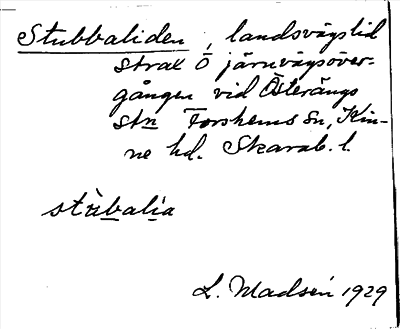 Stubbaliden, landsvägslid
strax Ö järnvägsöver-
gången vid Österängs
stn Forshems sn, Kin-
ne hd. Skarab. l.
stùbalia
L. Madsén 1929